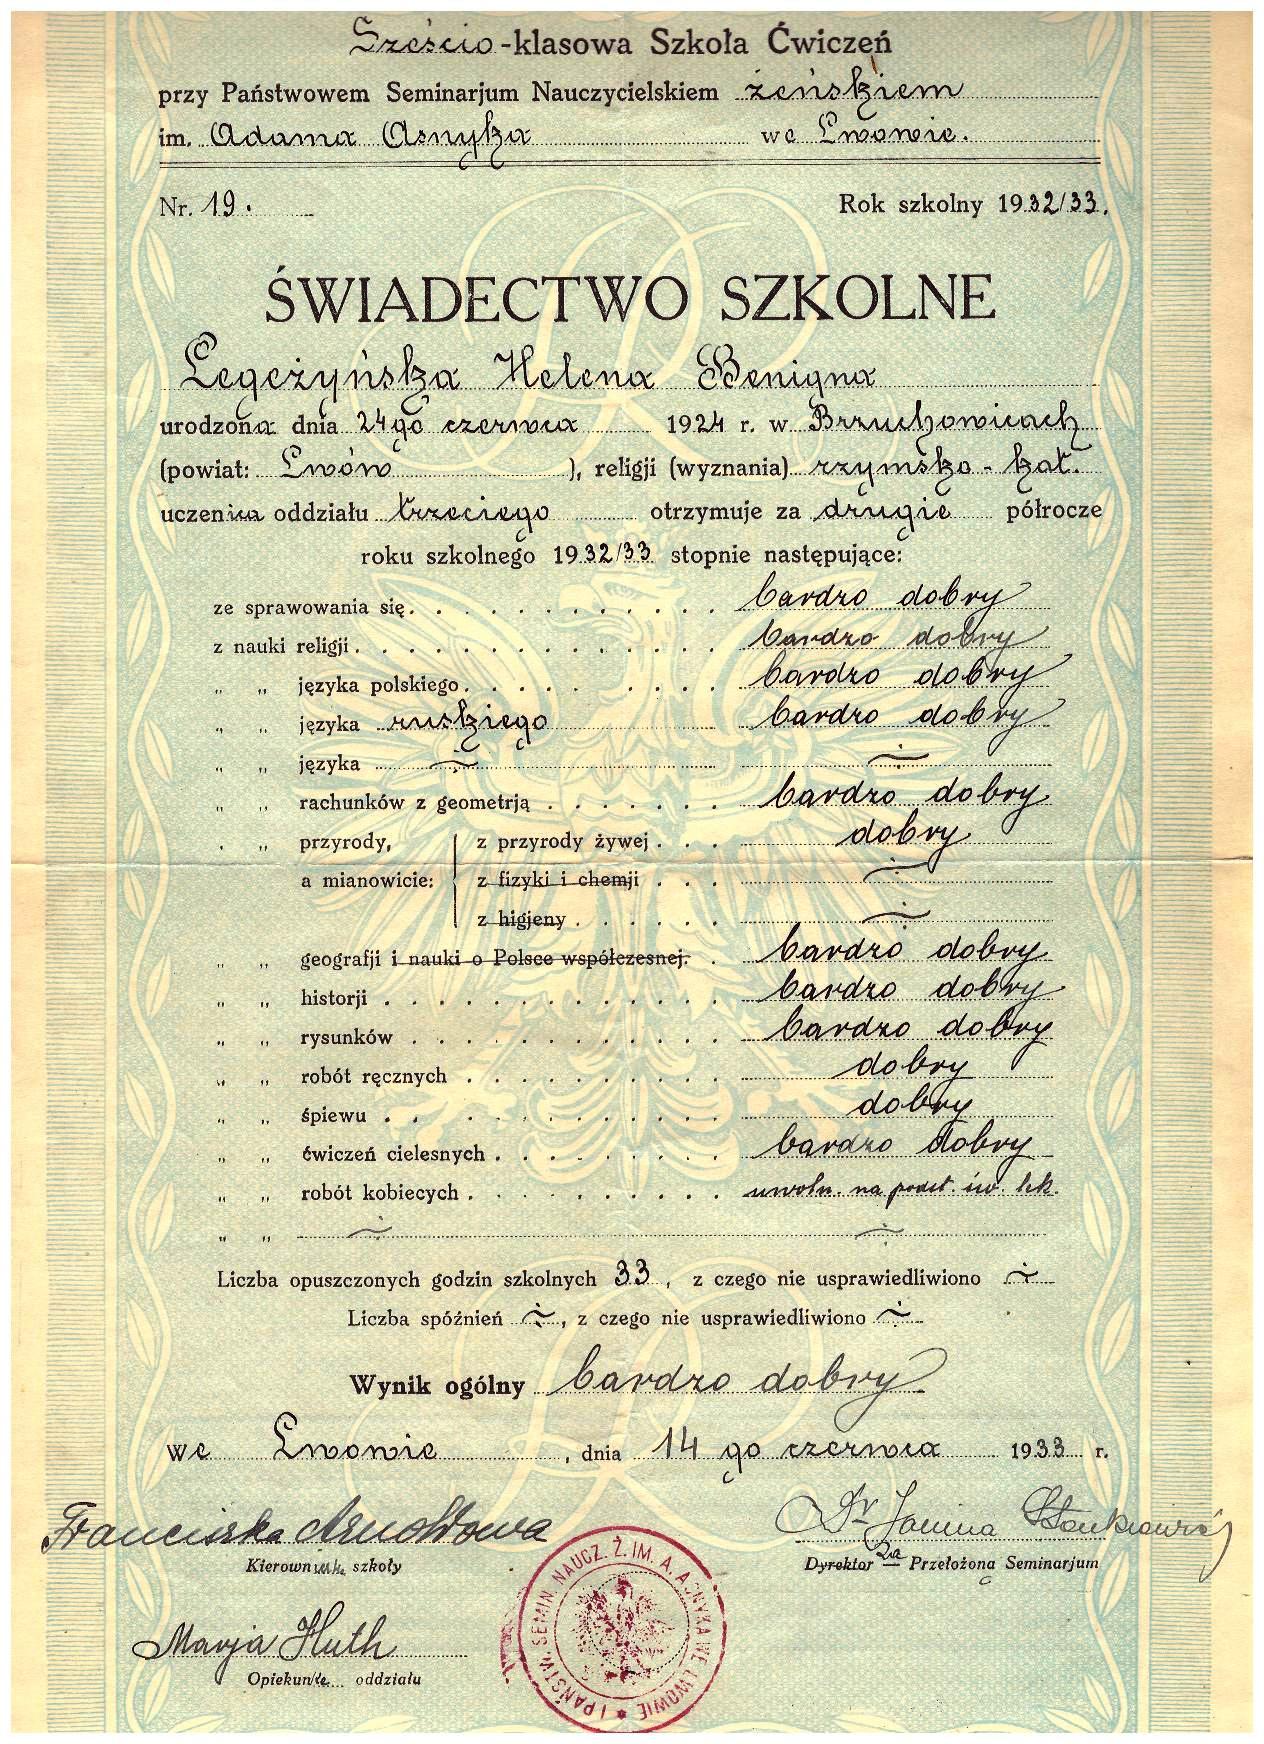 Sześcio-klasowa Szkoła Ćwiczeń
przy Państwowem Seminarjum Nauczycielskiem żeńskiem
im. Adama Asnyka we Lwowie.
Nr. 19. Rok szkolny 1932/33.
ŚWIADECTWO SZKOLNE
Legeżyńska Helena Benigna
urodzona dnia 24go czerwca 1924 r. w Brzuchowicach
(powiat: Lwów ), religji (wyznania) rzymsko-kat.
uczenica oddziału trzeciego otrzymuje za drugie półrocze
roku szkolnego 1932/33 stopnie następujące:
ze sprawowania się. bardzo dobry
z nauki religji. bardzo dobry
„ „ języka polskiego. bardzo dobry
„ „ języka ruskiego bardzo dobry
„ „ języka
„ „ rachunków z geometrją bardzo dobry
„ „ przyrody, z przyrody żywej dobry
a mianowicie: z fizyki i chemji
z higjeny
„ „ geografji i nauki o Polsce współczesnej. bardzo dobry
„ „ historji bardzo dobry
„ „ rysunków bardzo dobry
„ „ robót ręcznych dobry
„ „ śpiewu dobry
„ „ ćwiczeń cielesnych bardzo dobry
„ „ robót kobiecych uwoln. na podst. św. lek.
„ „
Liczba opuszczonych godzin szkolnych 33, z czego nie usprawiedliwiono
Liczba spóźnień , z czego nie usprawiedliwiono
Wynik ogólny bardzo dobry
we Lwowie, dnia 14go czerwca 1933 r.
Franciszka Arnoldowa Dr Janina
Kierownik szkoły Dyrektor Przełożona Seminarjum
Marja Huth
Opiekun oddziału
PAŃSTW. SEMIN. NAUCZ. Ż. IM. A. ASNYKA WE LWOWIE